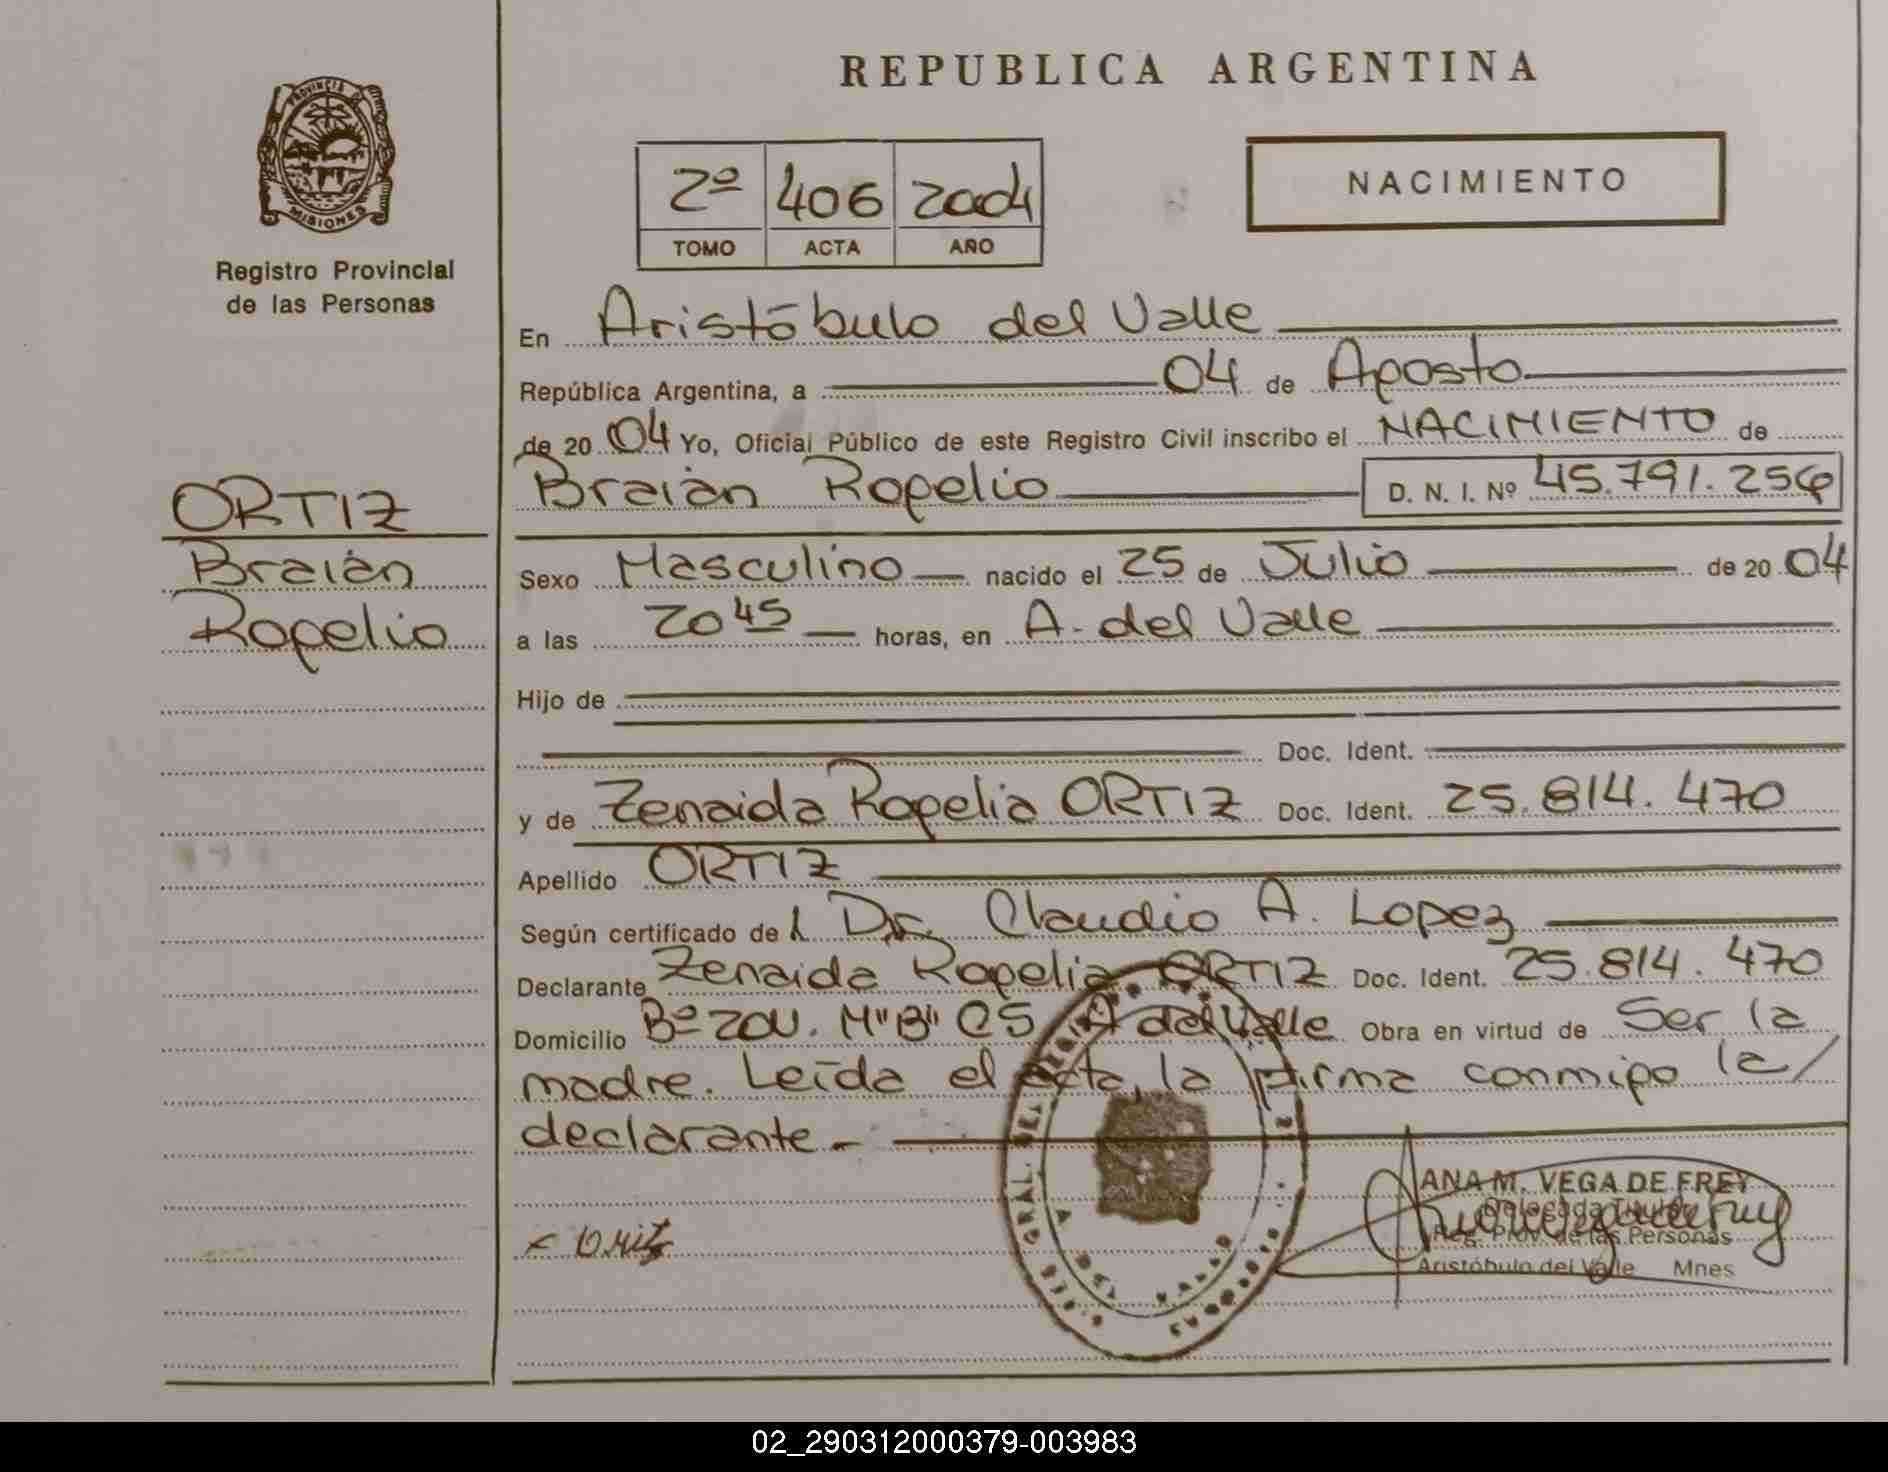 PROVINCIA DE
MISIONES
Registro Provincial
de las Personas
ORTIZ
Braián
Rogelio
REPUBLICA ARGENTINA
2º 406 2004
TOMO ACTA AÑO
NACIMIENTO
En Aristóbulo del Valle
República Argentina, a 04 de Agosto
de 20 04 Yo, Oficial Público de este Registro Civil inscribo el NACIMIENTO de
Braián Rogelio D. N. I. Nº 45.791.256
Sexo Masculino nacido el 25 de Julio de 20 04
a las 20 45 horas, en A. del Valle
Hijo de
Doc. Ident.
y de Zenaida Rogelia ORTIZ Doc. Ident. 25.814.470
Apellido ORTIZ
Según certificado del Dr. Claudio A. Lopez
Declarante Zenaida Rogelia ORTIZ Doc. Ident. 25.814.470
Domicilio Bº 20V. M"B" C5 A del Valle Obra en virtud de Ser la
madre. Leída el acta, la firma conmigo la/
declarante.-
ANA M. VEGA DE FREY
Delegada Titular
Reg. Prov. de las Personas
Aristóbulo del Valle Mnes
x Ortiz
02_290312000379-003983